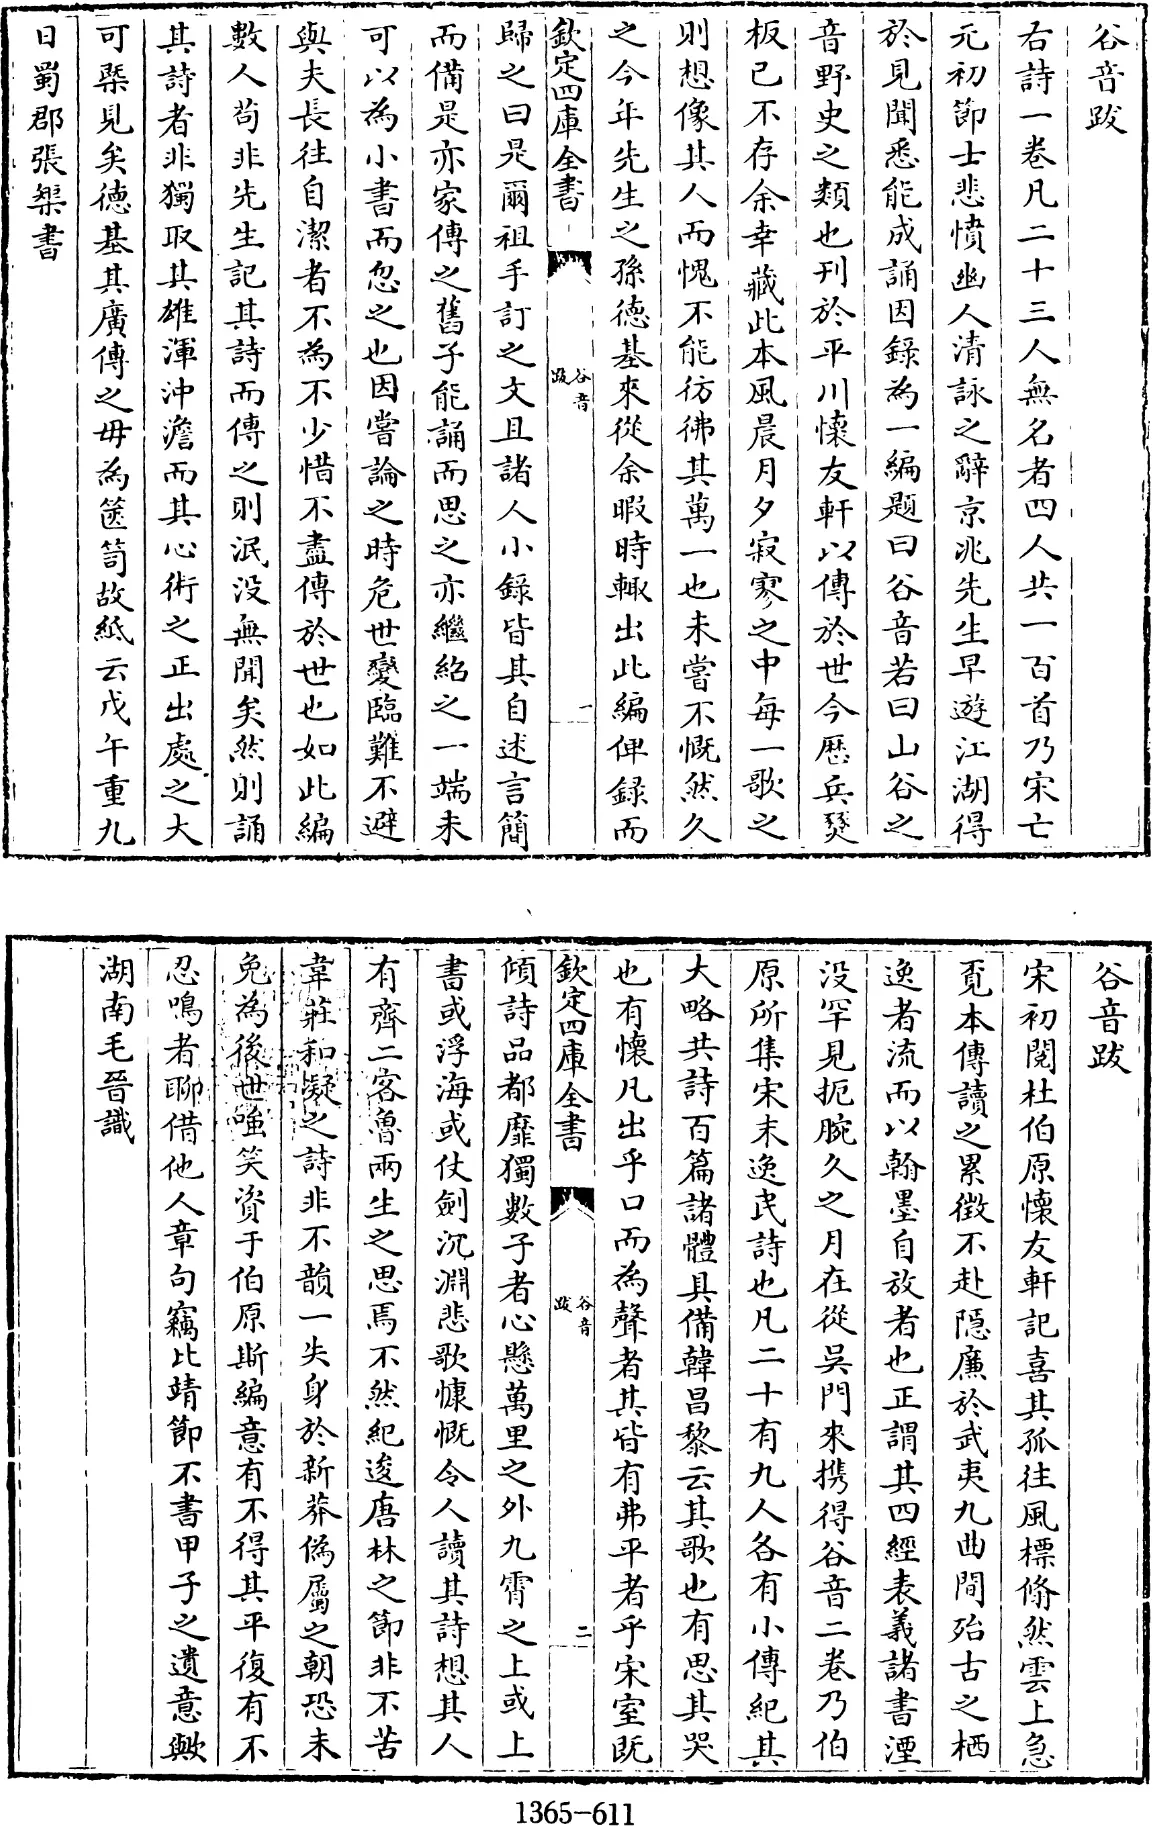 谷音跋
右詩一卷凡二十三人無名者四人共一百首乃宋亡
元初節士悲憤幽人清詠之辭京兆先生早遊江湖得
於見聞悉能成誦因錄為一編題曰谷音若曰山谷之
音野史之類也刊於平川懷友軒以傳於世今歷兵燹
板已不存余幸藏此本風晨月夕寂寥之中每一歌之
則想像其人而愧不能彷彿其萬一也未嘗不慨然久
之今年先生之孫德基來從余暇時輙出此編俾錄而
欽定四庫全書
谷音跋
一
歸之曰是爾祖手訂之文且諸人小錄皆其自述言簡
而備是亦家傳之舊子能誦而思之亦繼紹之一端未
可以為小書而忽之也因嘗論之時危世變臨難不避
與夫長往自潔者不為不少惜不盡傳於世也如此編
數人茍非先生記其詩而傳之則泯没無聞矣然則誦
其詩者非獨取其雄渾沖澹而其心術之正出處之大
可槩見矣德基其廣傳之毋為篋笥故紙云戊午重九
日蜀郡張榘書
谷音跋
宋初閱杜伯原懷友軒記喜其孤往風標翛然雲上急
覓本傳讀之累徵不赴隱廉於武夷九曲間殆古之栖
逸者流而以翰墨自放者也正謂其四經表義諸書湮
没罕見扼腕久之月在從吳門來携得谷音二卷乃伯
原所集宋末逸民詩也凡二十有九人各有小傳紀其
大略共詩百篇諸體具備韓昌黎云其歌也有思其哭
也有懷凡出乎口而為聲者其皆有弗平者乎宋室既
欽定四庫全書
谷音跋
二
傾詩品都靡獨數子者心懸萬里之外九霄之上或上
書或浮海或仗劍沉淵悲歌慷慨令人讀其詩想其人
有齊二客魯兩生之思焉不然紀逡唐林之節非不苦
韋莊和凝之詩非不韻一失身於新莽偽屬之朝恐未
免為後世嗤笑資于伯原斯編意有不得其平復有不
忍鳴者聊借他人章句竊比靖節不書甲子之遺意歟
湖南毛晉識
1365-611